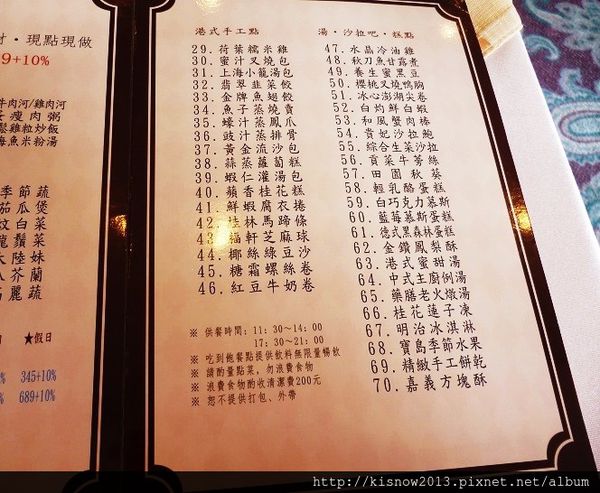 材·現點現做
9+10%
牛肉河/雞肉河
蛋瘦肉粥
鬆雞粒炒飯
海魚米粉湯
季節蔬
茄瓜煲
白菜
龍鬚菜
大陸妹
芥蘭
高麗蔬
★假日
345+10%
689+10%
港式手工點
29.荷葉糯米雞
30.蜜汁叉燒包
31.上海小籠湯包
32.翡翠韭菜餃
33.金牌魚翅餃
34.魚子蒸燒賣
35.蠔汁蒸鳳爪
36.豉汁蒸排骨
37.黃金流沙包
38.蒜蒸蘿蔔糕
39.蝦仁灌湯包
40.蘋香桂花糕
41.鮮蝦腐衣捲
42.桂林馬蹄條
43.福軒芝麻球
44.椰絲綠豆沙
45.糖霜螺絲卷
46.紅豆牛奶卷
※ 供餐時間：11:30~14:00
17:30~21:00
※ 吃到飽餐點提供飲料無限量暢飲
※ 請酌量點菜，勿浪費食物
※ 浪費食物酌收清潔費200元
※ 恕不提供打包、外帶
湯·沙拉吧·糕點
47.水晶冷油雞
48.秋刀魚甘露煮
49.養生蜜黑豆
50.櫻桃叉燒鴨胸
51.冰心澎湖尖卷
52.白灼鮮白蝦
53.和風蟹肉棒
54.貴妃沙拉鮑
55.綜合生菜沙拉
56.貢菜牛蒡絲
57.田園秋葵
58.輕乳酪蛋糕
59.白巧克力慕斯
60.藍莓慕斯蛋糕
61.德式黑森林蛋糕
62.金鑽鳳梨酥
63.港式蜜甜湯
64.中式主廚例湯
65.藥膳老火燉湯
66.桂花蓮子凍
67.明治冰淇淋
68.寶島季節水果
69.精緻手工餅乾
70.嘉義方塊酥
http://kisnow2013.pixnet.net/album